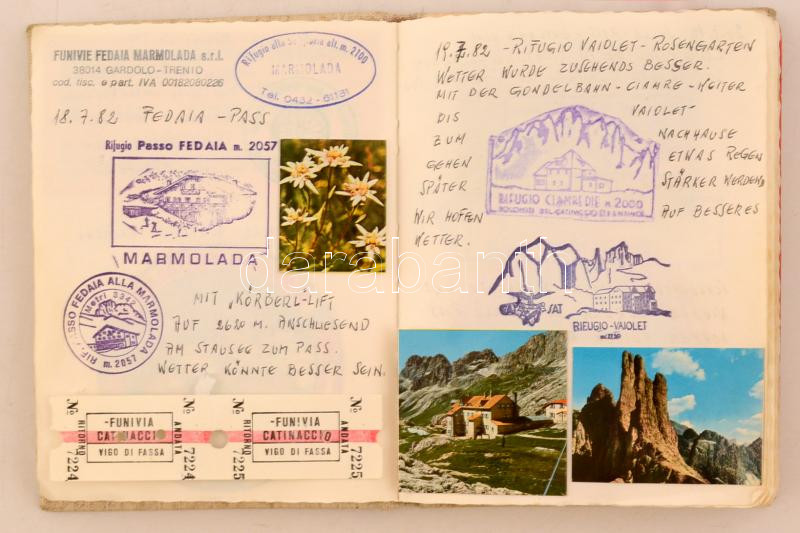 FUNIVIE FEDAIA MARMOLADA s.r.l.
38014 GARDOLO-TRENTO
cod. fisc. e part. IVA 00182080226
Rifugio alla
alt. m. 2100
MARMOLADA
Tel. 0432 - 61131
18.7.82 FEDAIA - PASS
Rifugio Passo FEDAIA m. 2057
MARMOLADA
RIF. PASSO FEDAIA ALLA MARMOLADA
Metri 3342
m. 2057
MIT "KÖRBERL-LIFT
AUF 2620 M. ANSCHLIESEND
AM STAUSEE ZUM PASS.
WETTER KÖNNTE BESSER SEIN.
No
RITORNO
-FUNIVIA
CATINACCIO
VIGO DI FASSA
No
ANDATA
7224
No
RITORNO
-FUNIVIA
CATINACCIO
VIGO DI FASSA
No
ANDATA
7225
19.7.82 - RIFUGIO VAIOLET - ROSENGARTEN
WETTER WURDE ZUSEHENDS BESSER.
MIT DER GONDELBAHN - CIAMPE - WEITER
BIS VAIOLET -
ZUM NACHHAUSE
GEHEN ETWAS REGEN
SPÄTER STÄRKER WERDEND
WIR HOFFEN AUF BESSERES
WETTER.
RIFUGIO CIAMPEDIE m. 2000
SAT
RIFUGIO - VAIOLET
darabanth